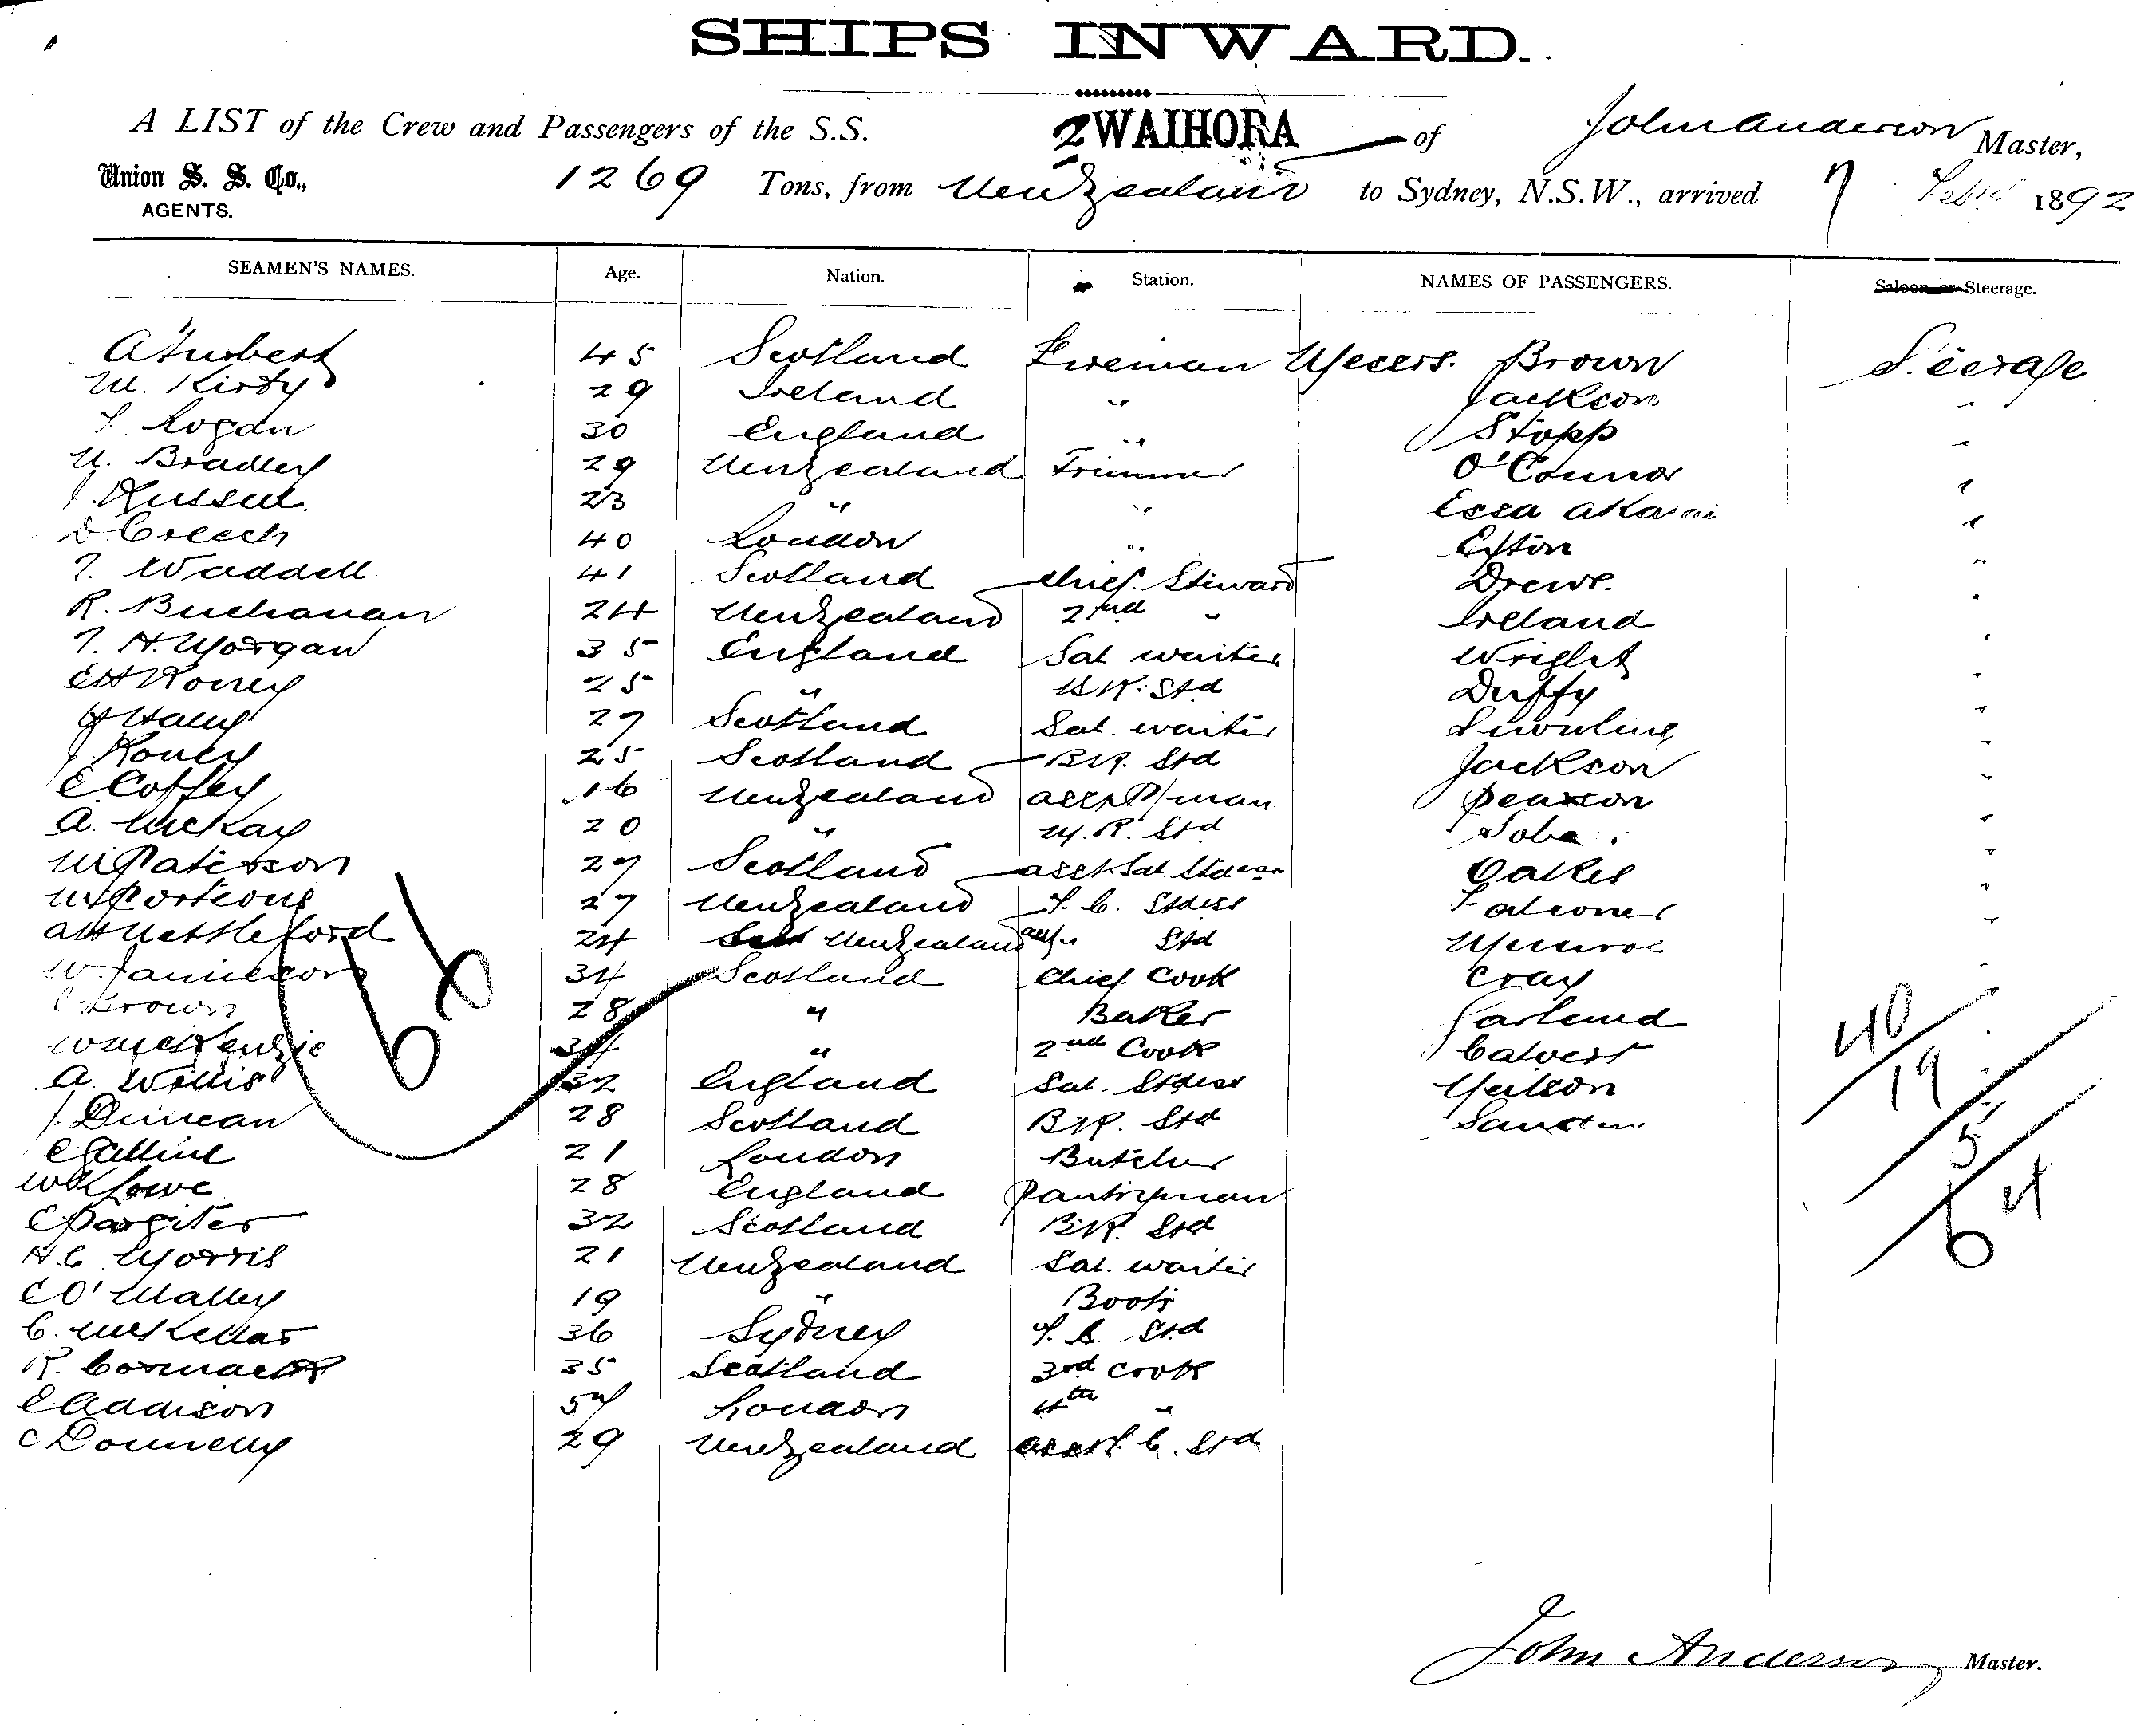 SHIPS INWARD.
A LIST of the Crew and Passengers of the S.S. 2 WAIHORA of John Anderson Master,
Union S. S. Co., AGENTS. 1269 Tons, from New Zealand to Sydney, N.S.W., arrived 7 Feb 1892
SEAMEN'S NAMES. Age. Nation. Station. NAMES OF PASSENGERS. Saloon or Steerage.
45 Scotland Fireman Messrs. Brown Steerage
M. Kirby 29 Ireland " Jackson "
Logan 30 England " Stopp "
Bradley 29 New Zealand Trimmer O'Connor "
J. Russell 23 " " Essa "
D Creech 40 London " Exton "
T. Waddell 41 Scotland Chief Steward Drews. "
R. Buchanan 24 New Zealand 2nd " Ireland "
T. H. Morgan 35 England Sal waiter Wright "
Roney 25 " Std Duffy "
27 Scotland Sal. waiter "
J. Roney 25 Scotland B.R. Std Jackson "
E Coffey 16 New Zealand asst P/man Pearson "
A. McKay 20 " M.R. Std "
M Paterson 27 Scotland asst Sal. Stdess Oakes "
Porteous 27 New Zealand F. C. Stdess Falconer "
A H Nettleford 24 New Zealand Std Munroe "
W. Jamieson 34 Scotland Chief Cook Cray "
Brown 28 " Baker Garland "
W McKenzie 34 " 2nd Cook Calvert
A. Willis 32 England Sal. Stdess Neilson
J. Duncan 28 Scotland B.R. Std
21 London Butcher
W K Lowe 28 England Pantryman
E Pargiter 32 Scotland B.R. Std
H. C. Morris 21 New Zealand Sal. waiter
C O'Malley 19 " Boots
C. McKellar 36 Sydney F. C. Std
R. Cormack 35 Scotland 3rd Cook
E Addison 57 London 4th "
C Donnelly 29 New Zealand asst F. C. Std
66
40
19
5
64
John Anderson Master.